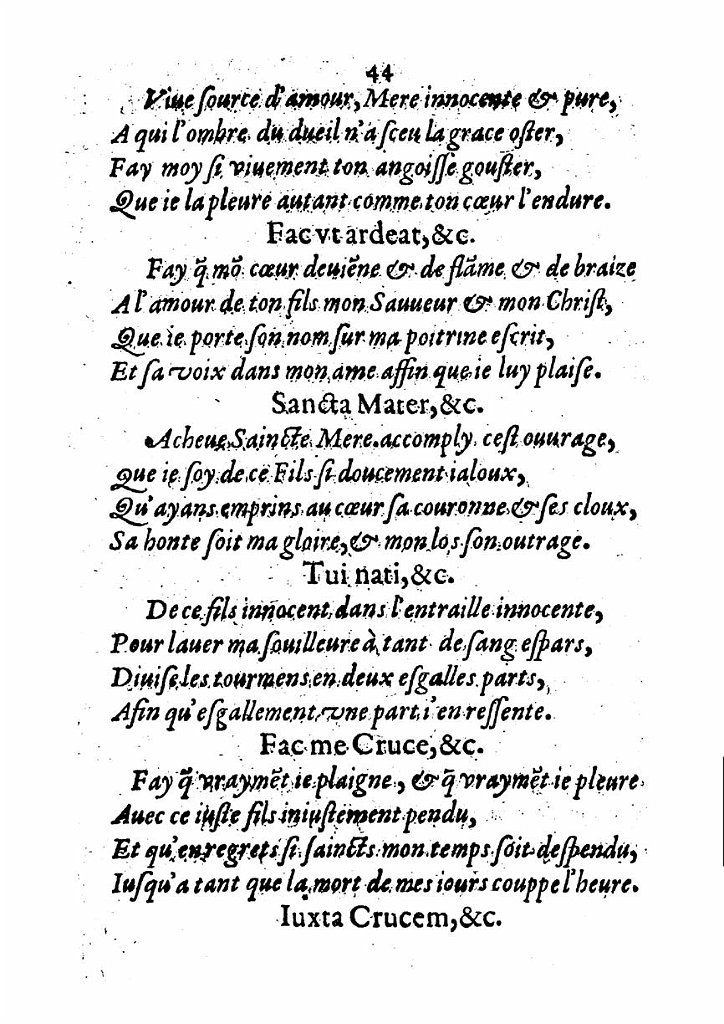 44
Viue ſource d'amour, Mere innocente & pure,
A qui l'ombre du dueil n'a ſceu la grace oſter,
Fay moy ſi viuement ton angoiſſe gouſter,
Que ie la pleure autant comme ton cœur l'endure.
Fac vt ardeat, &c.
Fay q̃ mõ cœur deuiẽne & de flãme & de braize
A l'amour de ton fils mon Sauueur & mon Chriſt,
Que ie porte ſon nom ſur ma poitrine eſcrit,
Et ſa voix dans mon ame affin que ie luy plaiſe.
Sancta Mater, &c.
Acheue Saincte Mere accomply ceſt ouurage,
Que ie ſoy de ce Fils ſi doucement ialoux,
Qu'ayans emprins au cœur ſa couronne & ſes cloux,
Sa honte ſoit ma gloire, & mon los ſon outrage.
Tui nati, &c.
De ce fils innocent dans l'entraille innocente,
Pour lauer ma ſouilleure à tant de ſang eſpars,
Diuiſe les tourmens en deux eſgalles parts,
Afin qu'eſgallement vne part i'en reſſente.
Fac me Cruce, &c.
Fay q̃ vraymẽt ie plaigne, & q̃ vraymẽt ie pleure
Auec ce iuſte fils iniuſtement pendu,
Et qu'en regrets ſi ſaincts mon temps ſoit deſpendu,
Iuſqu'a tant que la mort de mes iours couppe l'heure.
Iuxta Crucem, &c.